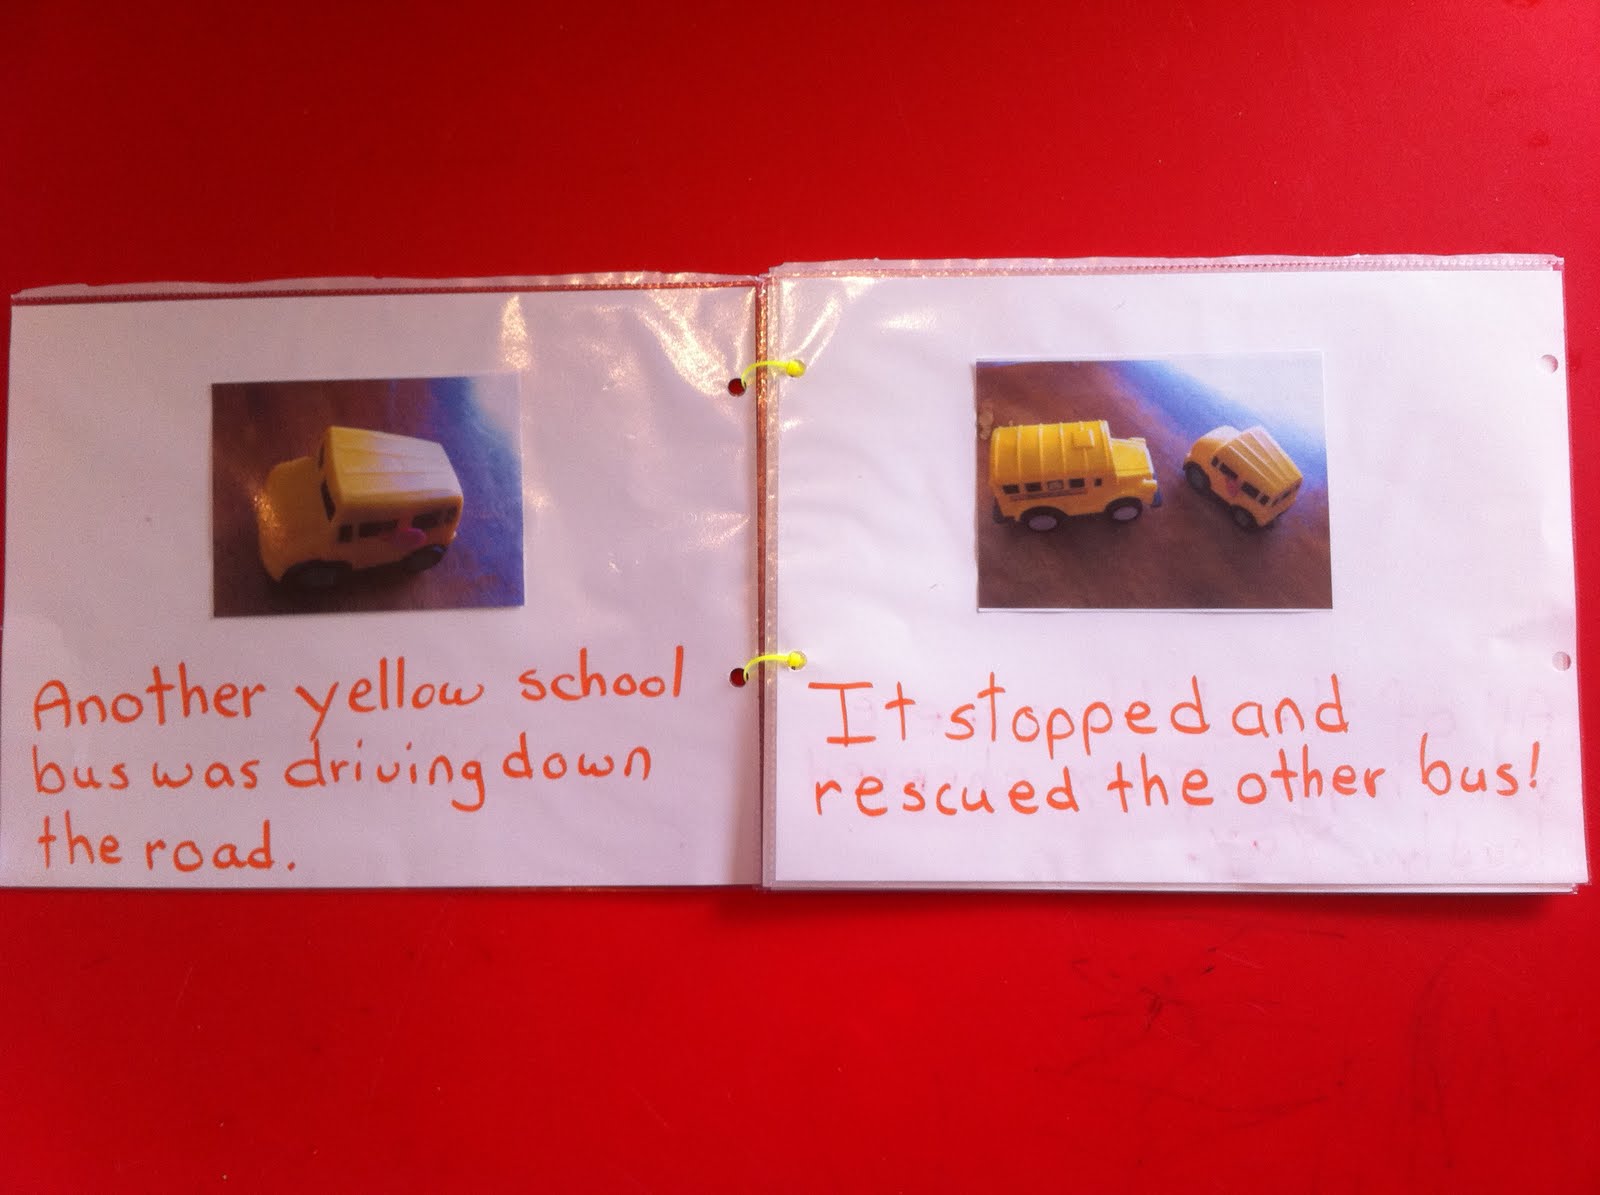 Another yellow school
bus was driving down
the road.
It stopped and
rescued the other bus!